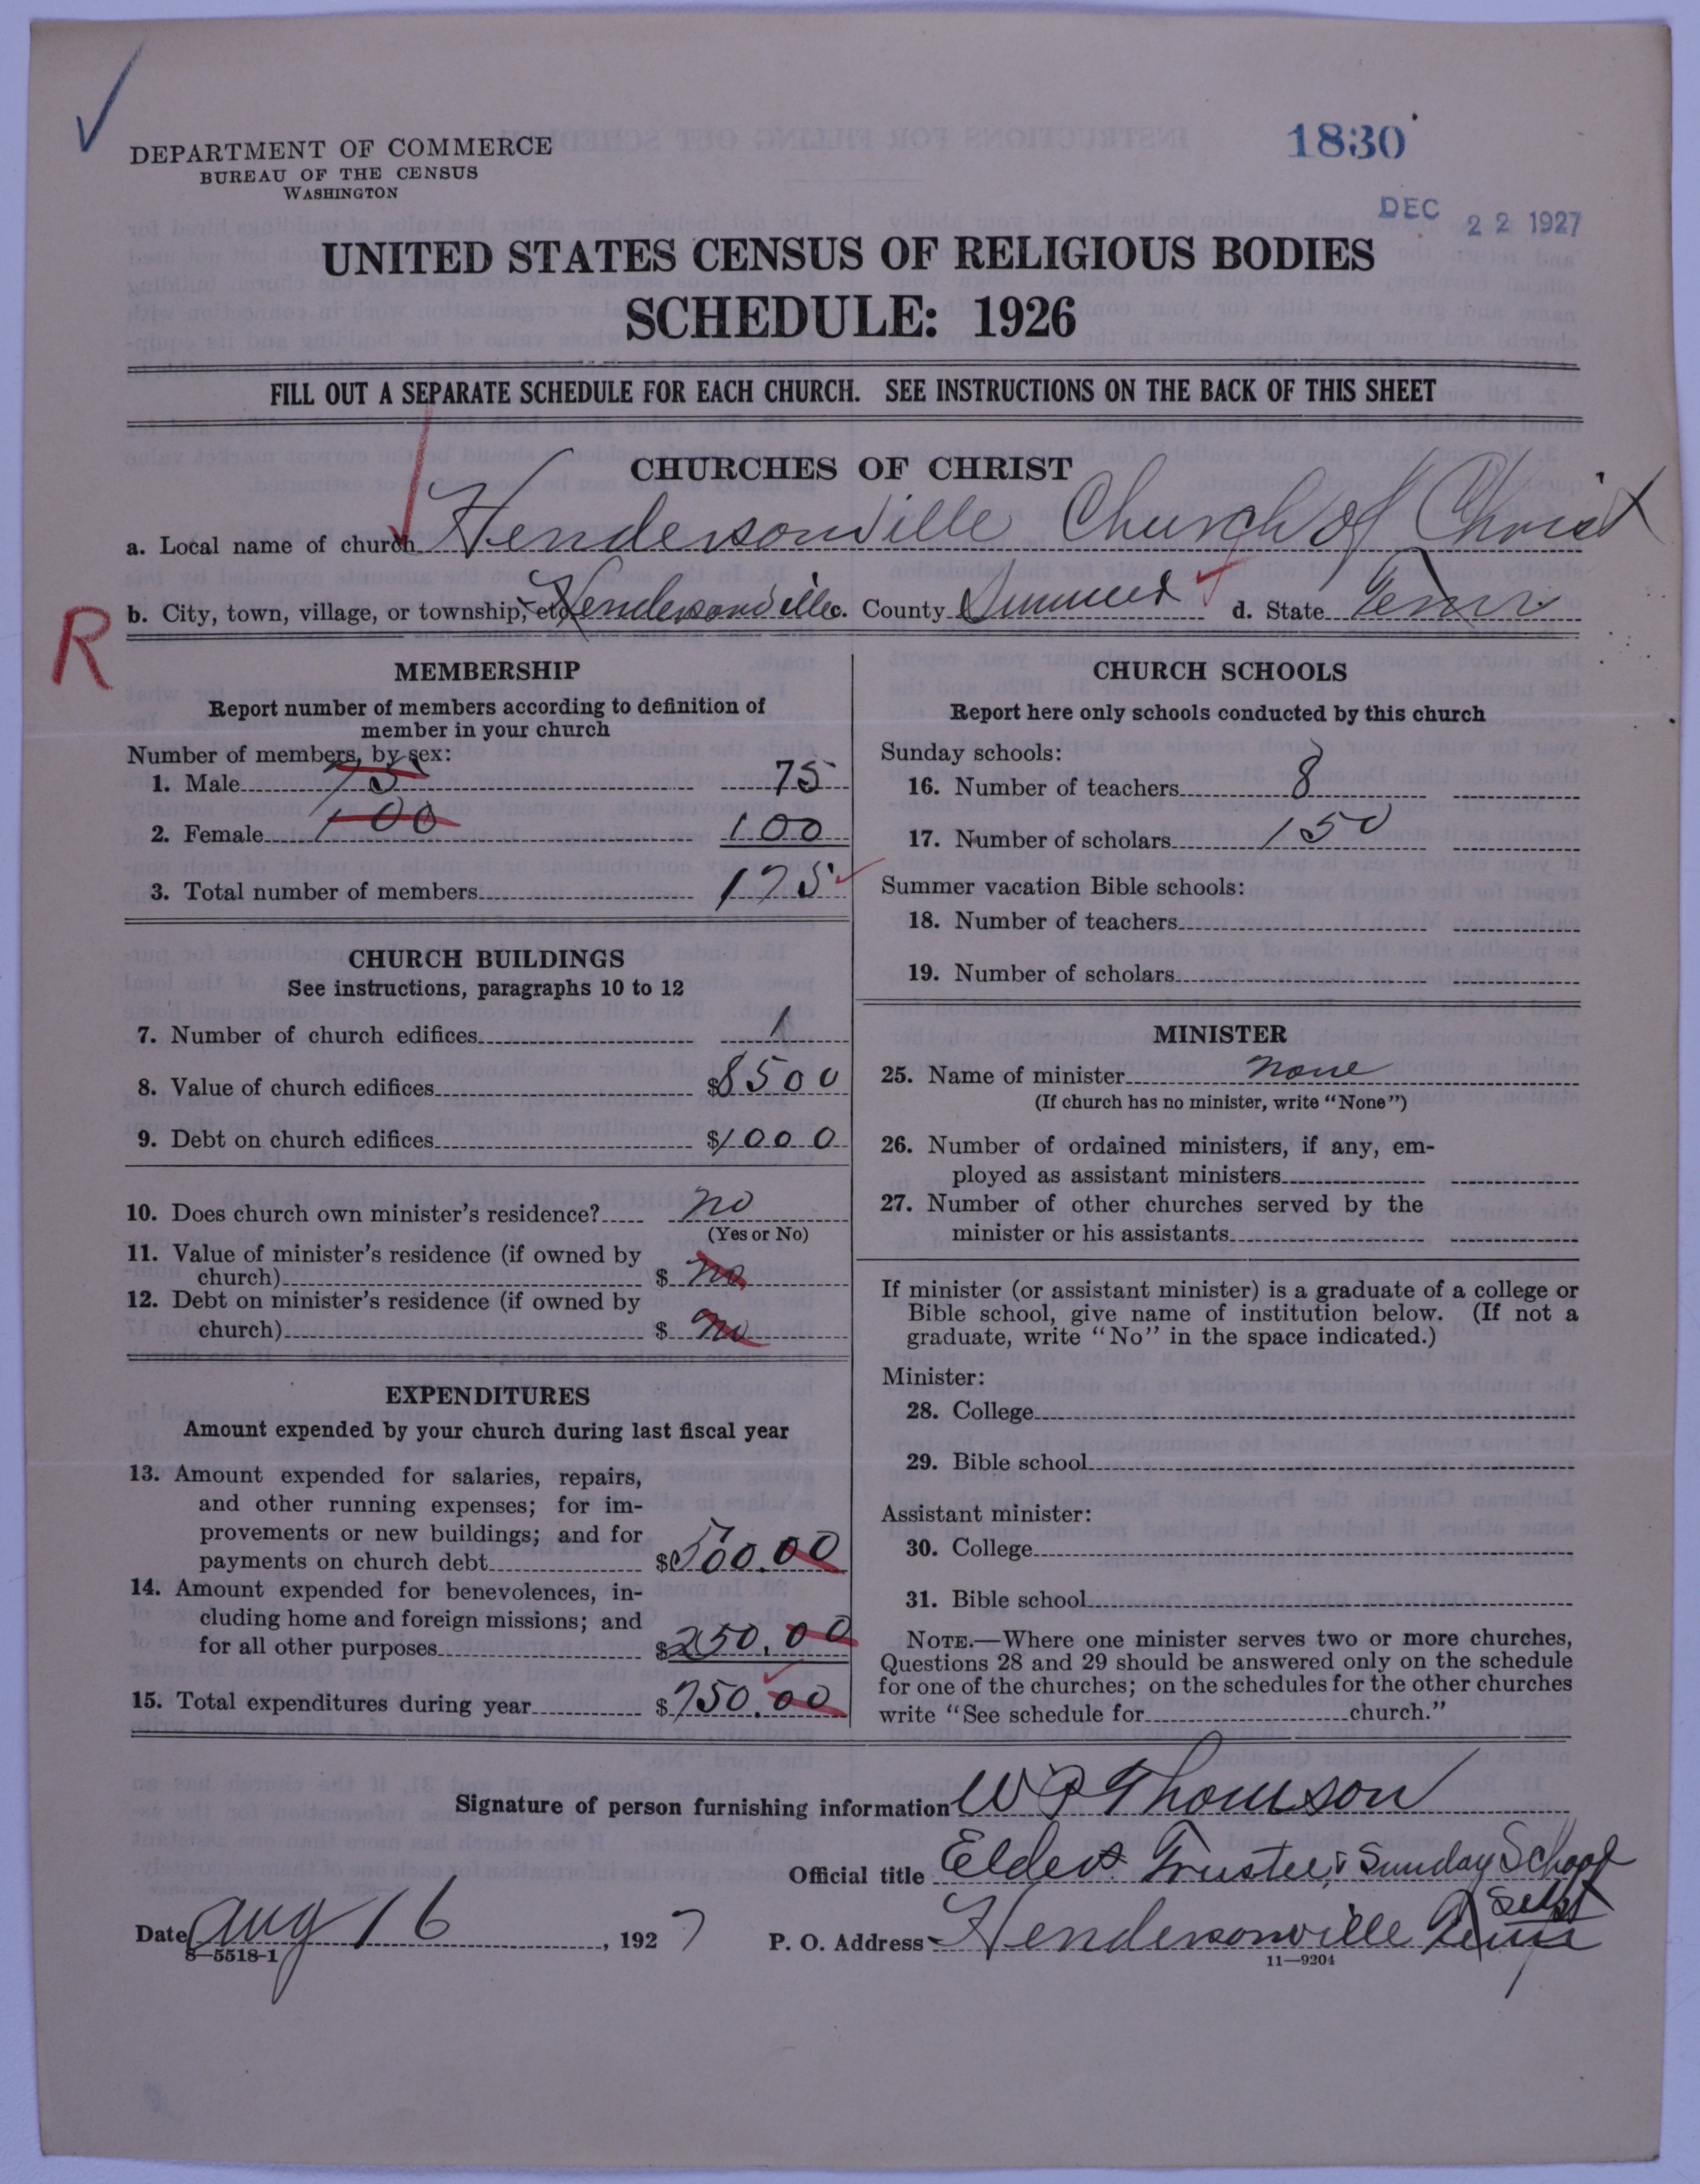 DEPARTMENT OF COMMERCE
BUREAU OF THE CENSUS
WASHINGTON
1830
DEC 22 1927
UNITED STATES CENSUS OF RELIGIOUS BODIES
SCHEDULE: 1926
FILL OUT A SEPARATE SCHEDULE FOR EACH CHURCH. SEE INSTRUCTIONS ON THE BACK OF THIS SHEET
CHURCHES OF CHRIST
a. Local name of church Hendersonville Church of Christ
R
b. City, town, village, or township, etc. Hendersonville c. County Sumner d. State Tenn
MEMBERSHIP
Report number of members according to definition of
member in your church
Number of members, by sex:
1. Male 75 75
2. Female 100 100
3. Total number of members 175
CHURCH BUILDINGS
See instructions, paragraphs 10 to 12
7. Number of church edifices 1
8. Value of church edifices $8500
9. Debt on church edifices $1000
10. Does church own minister's residence? no
(Yes or No)
11. Value of minister's residence (if owned by
church) $ no
12. Debt on minister's residence (if owned by
church) $ no
EXPENDITURES
Amount expended by your church during last fiscal year
13. Amount expended for salaries, repairs,
and other running expenses; for im-
provements or new buildings; and for
payments on church debt $500.00
14. Amount expended for benevolences, in-
cluding home and foreign missions; and
for all other purposes $250.00
15. Total expenditures during year $750.00
CHURCH SCHOOLS
Report here only schools conducted by this church
Sunday schools:
16. Number of teachers 8
17. Number of scholars 150
Summer vacation Bible schools:
18. Number of teachers
19. Number of scholars
MINISTER
25. Name of minister none
(If church has no minister, write "None")
26. Number of ordained ministers, if any, em-
ployed as assistant ministers
27. Number of other churches served by the
minister or his assistants
If minister (or assistant minister) is a graduate of a college or
Bible school, give name of institution below. (If not a
graduate, write "No" in the space indicated.)
Minister:
28. College
29. Bible school
Assistant minister:
30. College
31. Bible school
NOTE.—Where one minister serves two or more churches,
Questions 28 and 29 should be answered only on the schedule
for one of the churches; on the schedules for the other churches
write "See schedule for church."
Signature of person furnishing information W P Thomson
Official title Elder. Trustee, & Sunday School
Date Aug 16, 1927 P. O. Address Hendersonville Tenn
8—5518-1
11—9204